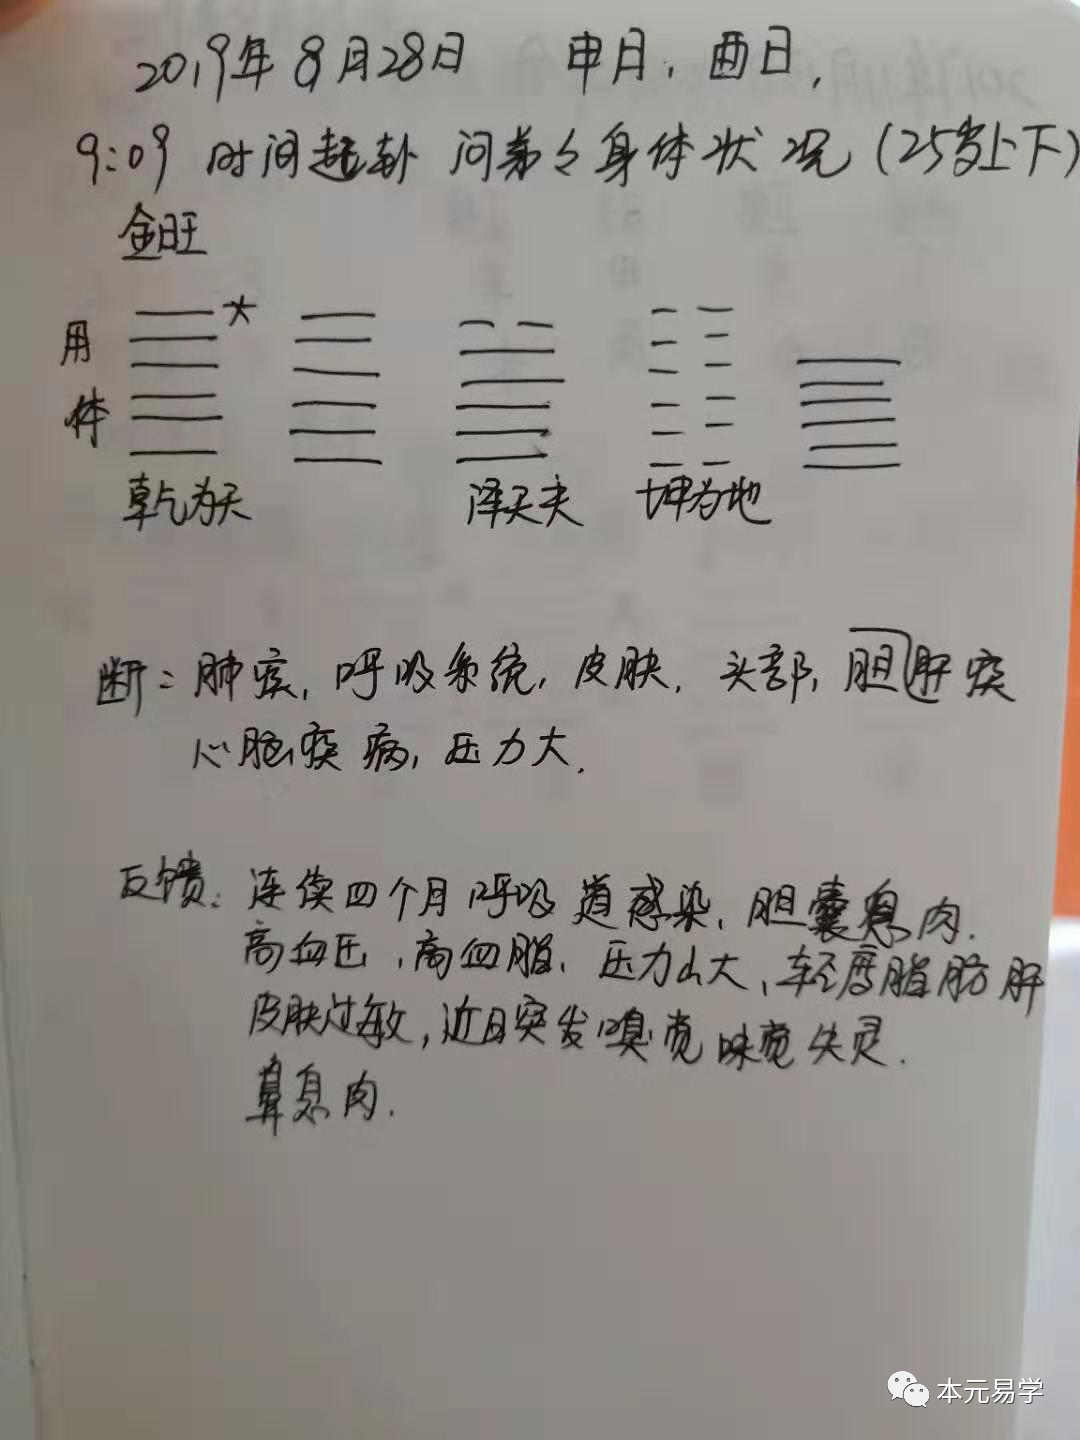 2019年8月28日 申月，酉日，
9:09 时间起卦 问弟弟身体状况（25岁上下）
金旺
用
体
乾为天 泽天夬 坤为地
断：肺疾，呼吸系统，皮肤，头部，胆肝疾
心脑疾病，压力大．
反馈：连续四个月呼吸道感染，胆囊息肉．
高血压，高血脂，压力山大，轻度脂肪肝
皮肤过敏，近日突发嗅觉味觉失灵．
鼻息肉．
本元易学